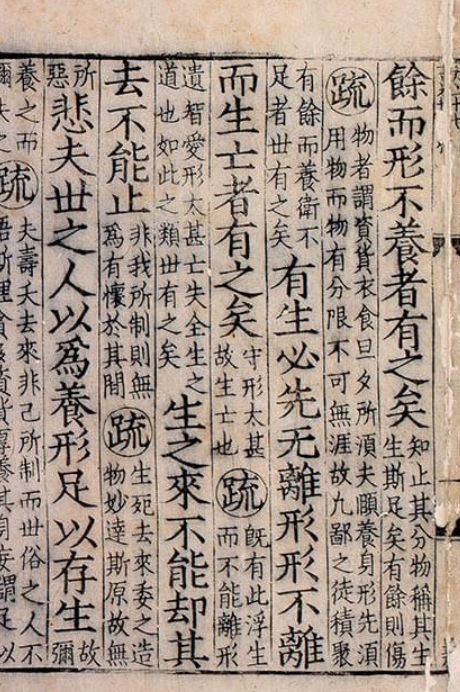 餘而形不養者有之矣知止其分物稱其生生斯足矣有餘則傷
疏物者謂資貨衣食旦夕所湏夫頤養身形先湏用物而物有分限不可無涯故凡鄙之徒積聚
有餘而養衛不足者丗有之矣有生必先无離形形不離
而生亡者有之矣守形太甚故生亡也疏旣有此浮生而不能離形
遺智愛形太甚亡失全生之道也如此之類丗有之矣生之來不能却其
去不能止非我所制則無爲有懷於其間疏生死去來委之造物妙達斯原故無
所惡悲夫丗之人以爲養形足以存生故彌
養之而彌失之疏夫壽夭去來非己所制而世俗之人不悟斯理貪多資貨厚養其身妄謂足以